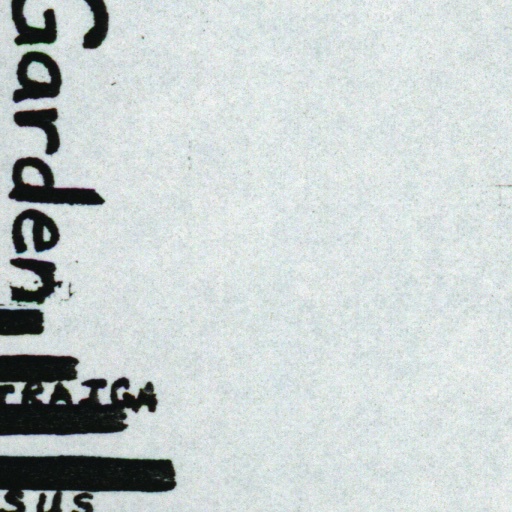 Garden
TRAIGA
sus